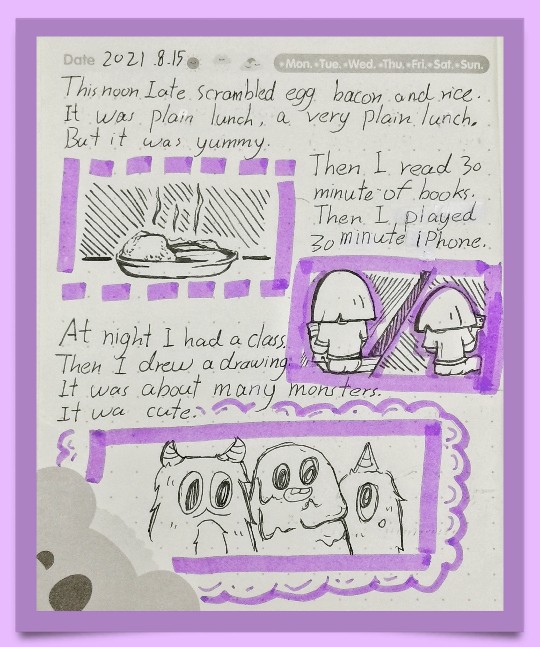 Date 2021.8.15
•Mon. •Tue. •Wed. •Thu. •Fri. •Sat. •Sun.
This noon I ate scrambled egg bacon and rice.
It was plain lunch, a very plain lunch.
But it was yummy.
Then I read 30
minute of books.
Then I played
30 minute iPhone.
At night I had a class.
Then I drew a drawing.
It was about many monsters.
It wa cute.